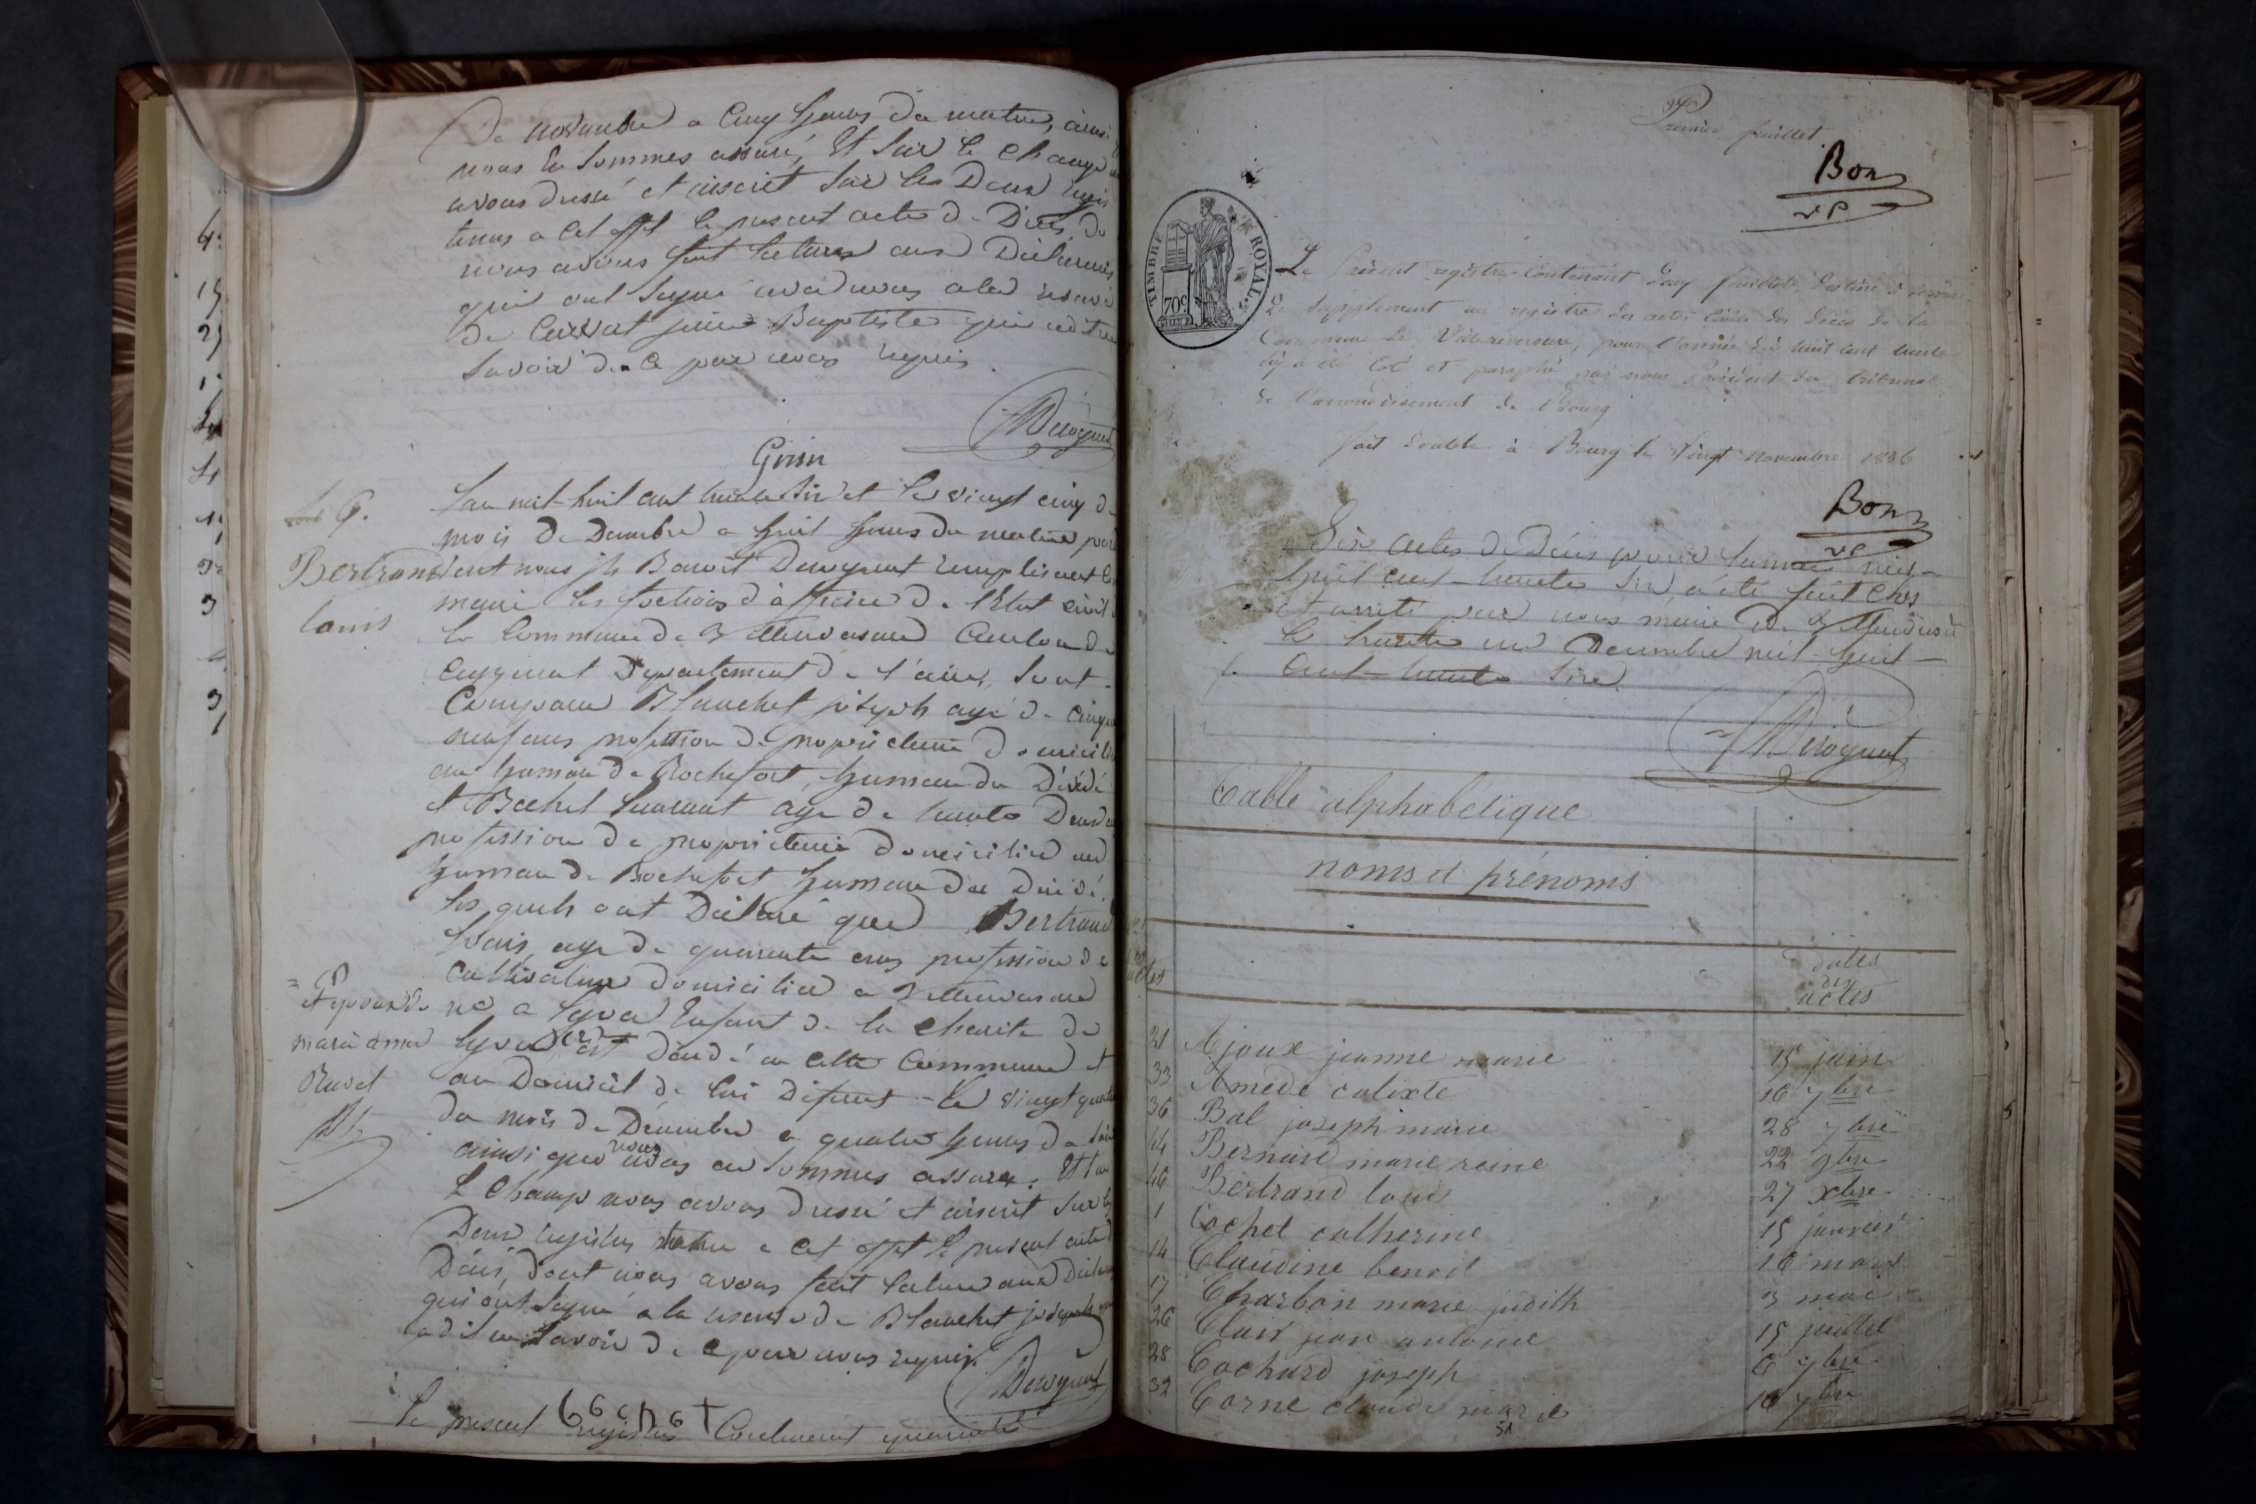 De novembre a cinq heures du matin, ainsi
nous en sommes assuré, Et sur le champ
avons dressé et inscrit sur les Deux regis
tenus a cet effet le present acte de Décès, do
nous avons fait lecture aux Déclarants
qui ont signé avec nous a la reserve
de Baptiste qui
savoir de ce par nous requis.
Derognat
Girin
L'an mil huit cent trente six et le vingt cinq d
mois De Decembre a huit heures du matin par
46.
Bertrand
louis
devant nous Benoit Derognat remplissant
maire les fonctions d'officier De l'Etat civil
la Commune De Villereversure Canton De
Ceyzeriat Departement De l'ain, sont
Comparu Blanchet joseph agé De cinqu
neuf ans profession De propriétaire domicilié
au hameau De Rochefort, hameau du Décédé
et Bochet Laurent agé De trente Deux
profession De proprietaire domicilié au
hameau De Rochefort hameau du Décédé.
Les quels ont Déclaré que Bertrand
louis, agé De quarante ans profession De
Cultivateur domicilié a Villereversure
Epoux De
marie anne
Ravet
né a Lyon Enfant De la Charité De
Lyon est Décédé en cette Commune et
au Domicil De lui Défunt le vingt quatre
du mois De Décembre a quatre heures Du soir
ainsi que nous nous en sommes assurer. Et sur
le Champ nous avons Dressé et inscrit sur les
Deux registres tenu a cet effet le present acte d
Décès, Dont nous avons fait lecture aux Déclar
qui ont signé a la reserve De Blanchet joseph qui
a dit ne savoir De ce par nous requis.
Derognat
Le present registre Contenant quarante
Bochet
Premier feuillet
Bon
TIMBRE ROYAL
70c
Le Présent registre contenant deux feuillets destiné à servir
De Supplément au registre des actes civils des Décès de la
Commune de Villereversure, pour l'année dix huit cent trente
six a été Coté et paraphé par nous Président du tribunal
de l'arrondissement de Bourg
fait double à Bourg le Vingt novembre 1836
Bon
Six actes De Décès pour l'année mil
huit cent trente six a été fait Clos
et arreté par nous maire De Villereversure
le trente un Decembre mil huit
cent trente Six.
Derognat
Table alphabétique
noms et prénoms
dates
des
actes
21 Ajoux jeanne marie 15 juin
33 Amede calixte 16 7bre
36 Bal joseph marie 28 7bre
44 Bernard marie reine 22 9bre
46 Bertrand louis 27 Xbre
1 Cochet catherine 15 janvier
14 Claudine benoit 16 mars
17 Charbon marie judith 3 mai
26 Clair jean antoine 15 juillet
28 Cochard joseph 6 7bre
32 Corne claude marie 10 7bre
51